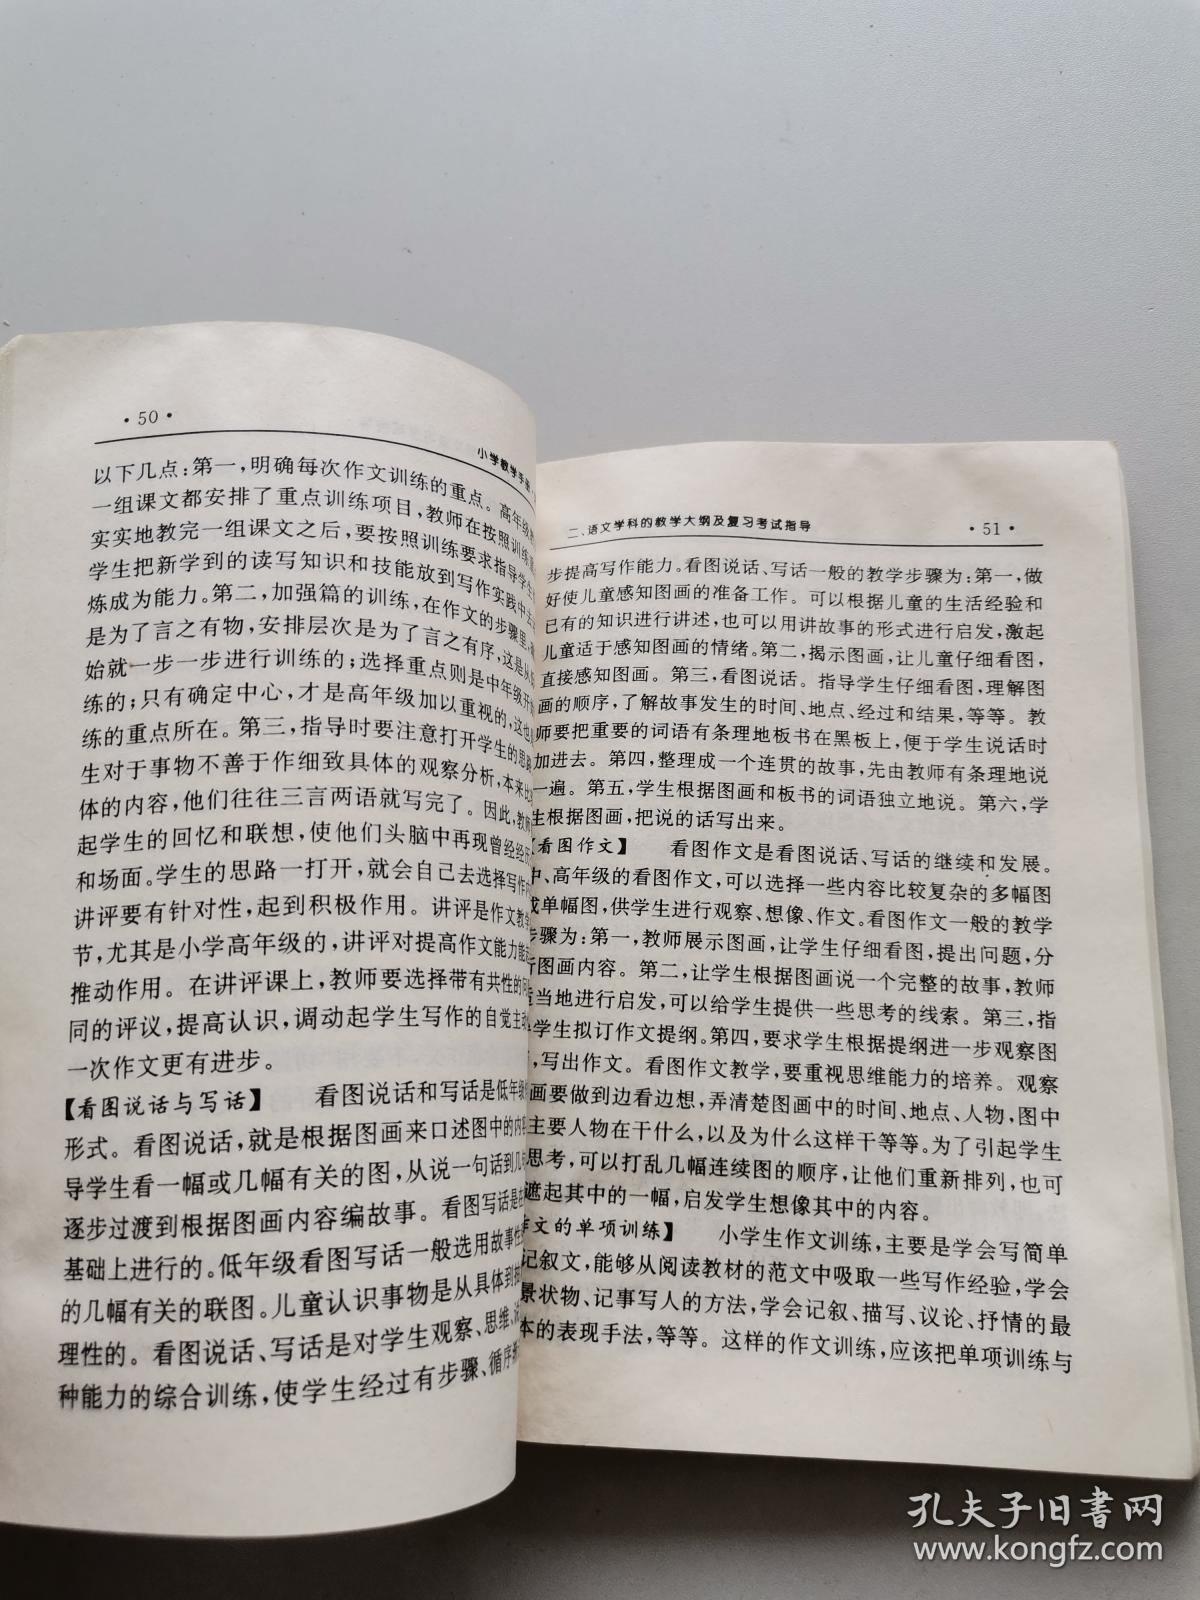 ·50·
小学教学手册
以下几点：第一，明确每次作文训练的重点。高年级
一组课文都安排了重点训练项目，教师在按照训练
实实地教完一组课文之后，要按照训练要求指导学生
学生把新学到的读写知识和技能放到写作实践中去
炼成为能力。第二，加强篇的训练，在作文的步骤里，
是为了言之有物，安排层次是为了言之有序，这是从
始就一步一步进行训练的；选择重点则是中年级开
练的；只有确定中心，才是高年级加以重视的，这也
练的重点所在。第三，指导时要注意打开学生的思路
生对于事物不善于作细致具体的观察分析，本来比
体的内容，他们往往三言两语就写完了。因此，教师
起学生的回忆和联想，使他们头脑中再现曾经经历
和场面。学生的思路一打开，就会自己去选择写作内
讲评要有针对性，起到积极作用。讲评是作文教学
节，尤其是小学高年级的，讲评对提高作文能力能
推动作用。在讲评课上，教师要选择带有共性的问
同的评议，提高认识，调动起学生写作的自觉主动
一次作文更有进步。
【看图说话与写话】 看图说话和写话是低年级
形式。看图说话，就是根据图画来口述图中的内容
导学生看一幅或几幅有关的图，从说一句话到几句
逐步过渡到根据图画内容编故事。看图写话是在
基础上进行的。低年级看图写话一般选用故事性
的几幅有关的联图。儿童认识事物是从具体到抽
理性的。看图说话、写话是对学生观察、思维、
种能力的综合训练，使学生经过有步骤、循序
二、语文学科的教学大纲及复习考试指导
·51·
步提高写作能力。看图说话、写话一般的教学步骤为：第一，做
好使儿童感知图画的准备工作。可以根据儿童的生活经验和
已有的知识进行讲述，也可以用讲故事的形式进行启发，激起
儿童适于感知图画的情绪。第二，揭示图画，让儿童仔细看图，
直接感知图画。第三，看图说话。指导学生仔细看图，理解图
画的顺序，了解故事发生的时间、地点、经过和结果，等等。教
师要把重要的词语有条理地板书在黑板上，便于学生说话时
加进去。第四，整理成一个连贯的故事，先由教师有条理地说
一遍。第五，学生根据图画和板书的词语独立地说。第六，学
生根据图画，把说的话写出来。
【看图作文】 看图作文是看图说话、写话的继续和发展。
中、高年级的看图作文，可以选择一些内容比较复杂的多幅图
或单幅图，供学生进行观察、想像、作文。看图作文一般的教学
步骤为：第一，教师展示图画，让学生仔细看图，提出问题，分
析图画内容。第二，让学生根据图画说一个完整的故事，教师
适当地进行启发，可以给学生提供一些思考的线索。第三，指
学生拟订作文提纲。第四，要求学生根据提纲进一步观察图
，写出作文。看图作文教学，要重视思维能力的培养。观察
画要做到边看边想，弄清楚图画中的时间、地点、人物，图中
主要人物在干什么，以及为什么这样干等等。为了引起学生
思考，可以打乱几幅连续图的顺序，让他们重新排列，也可
遮起其中的一幅，启发学生想像其中的内容。
作文的单项训练】 小学生作文训练，主要是学会写简单
记叙文，能够从阅读教材的范文中吸取一些写作经验，学会
景状物、记事写人的方法，学会记叙、描写、议论、抒情的最
本的表现手法，等等。这样的作文训练，应该把单项训练与
孔夫子旧书网
www.kongfz.com